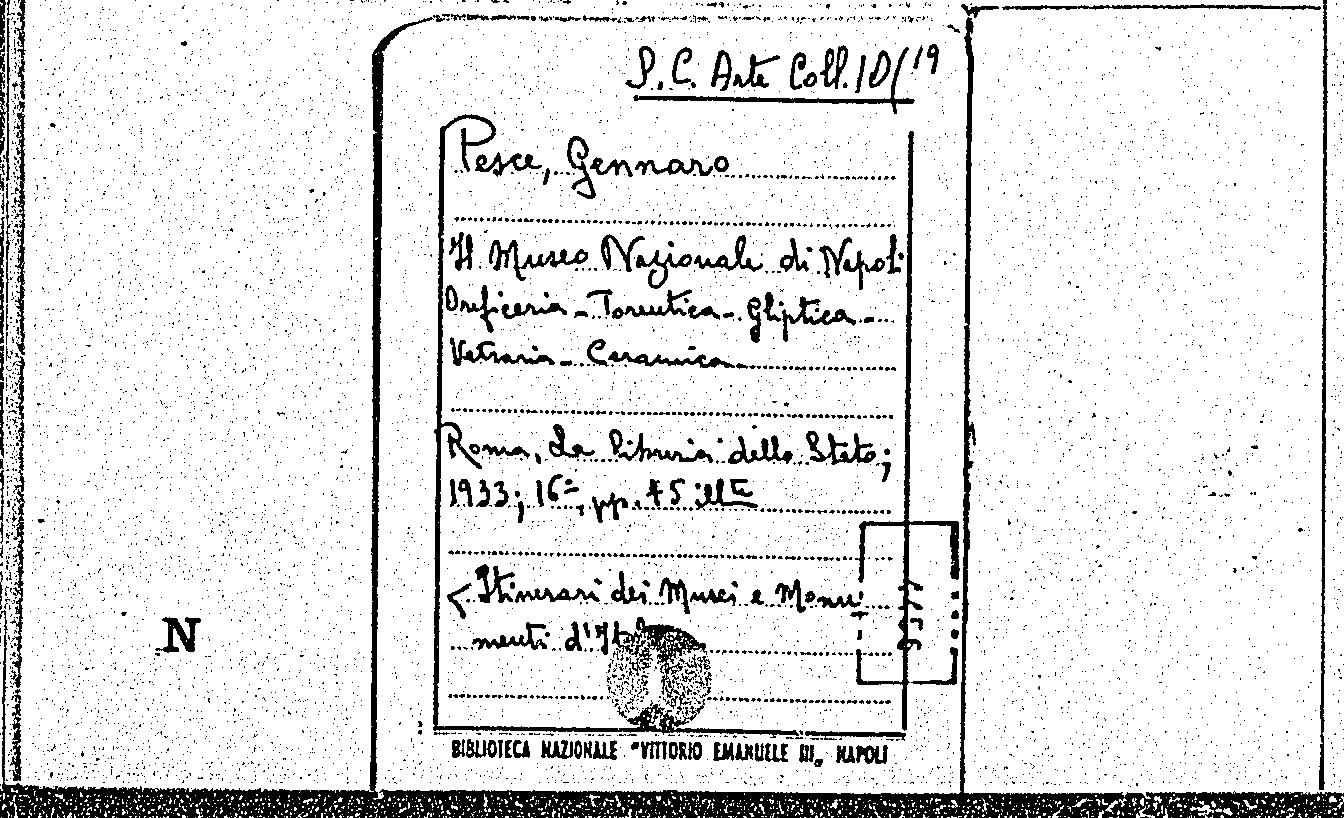 S.C. Arte Coll. 10/19
Pesce, Gennaro
Il Museo Nazionale di Napoli
Oreficeria - Toreutica - Gliptica -
Vetraria - Ceramica
Roma, La Libreria dello Stato;
1933; 16º, pp. 75 illte
< Itinerari dei Musei e Monu
menti d'
N
BIBLIOTECA NAZIONALE "VITTORIO EMANUELE III„ NAPOLI